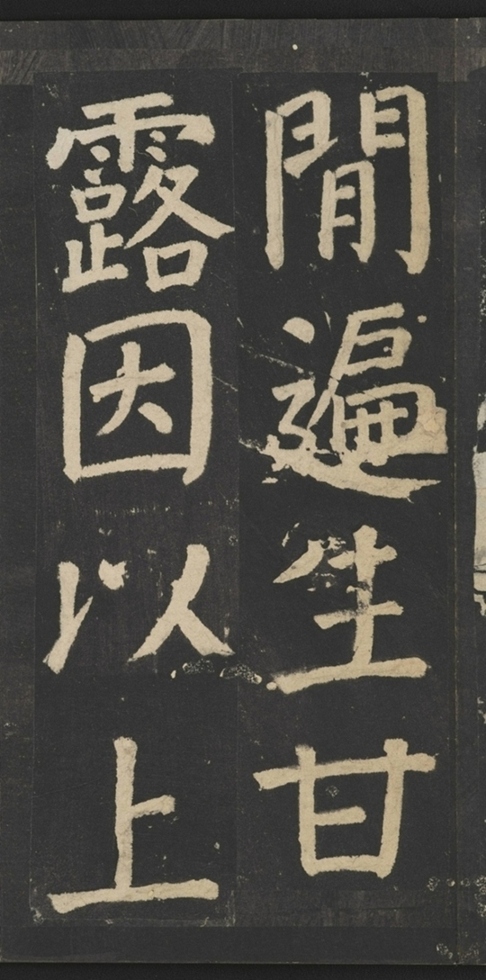 間遍生甘
露因以上